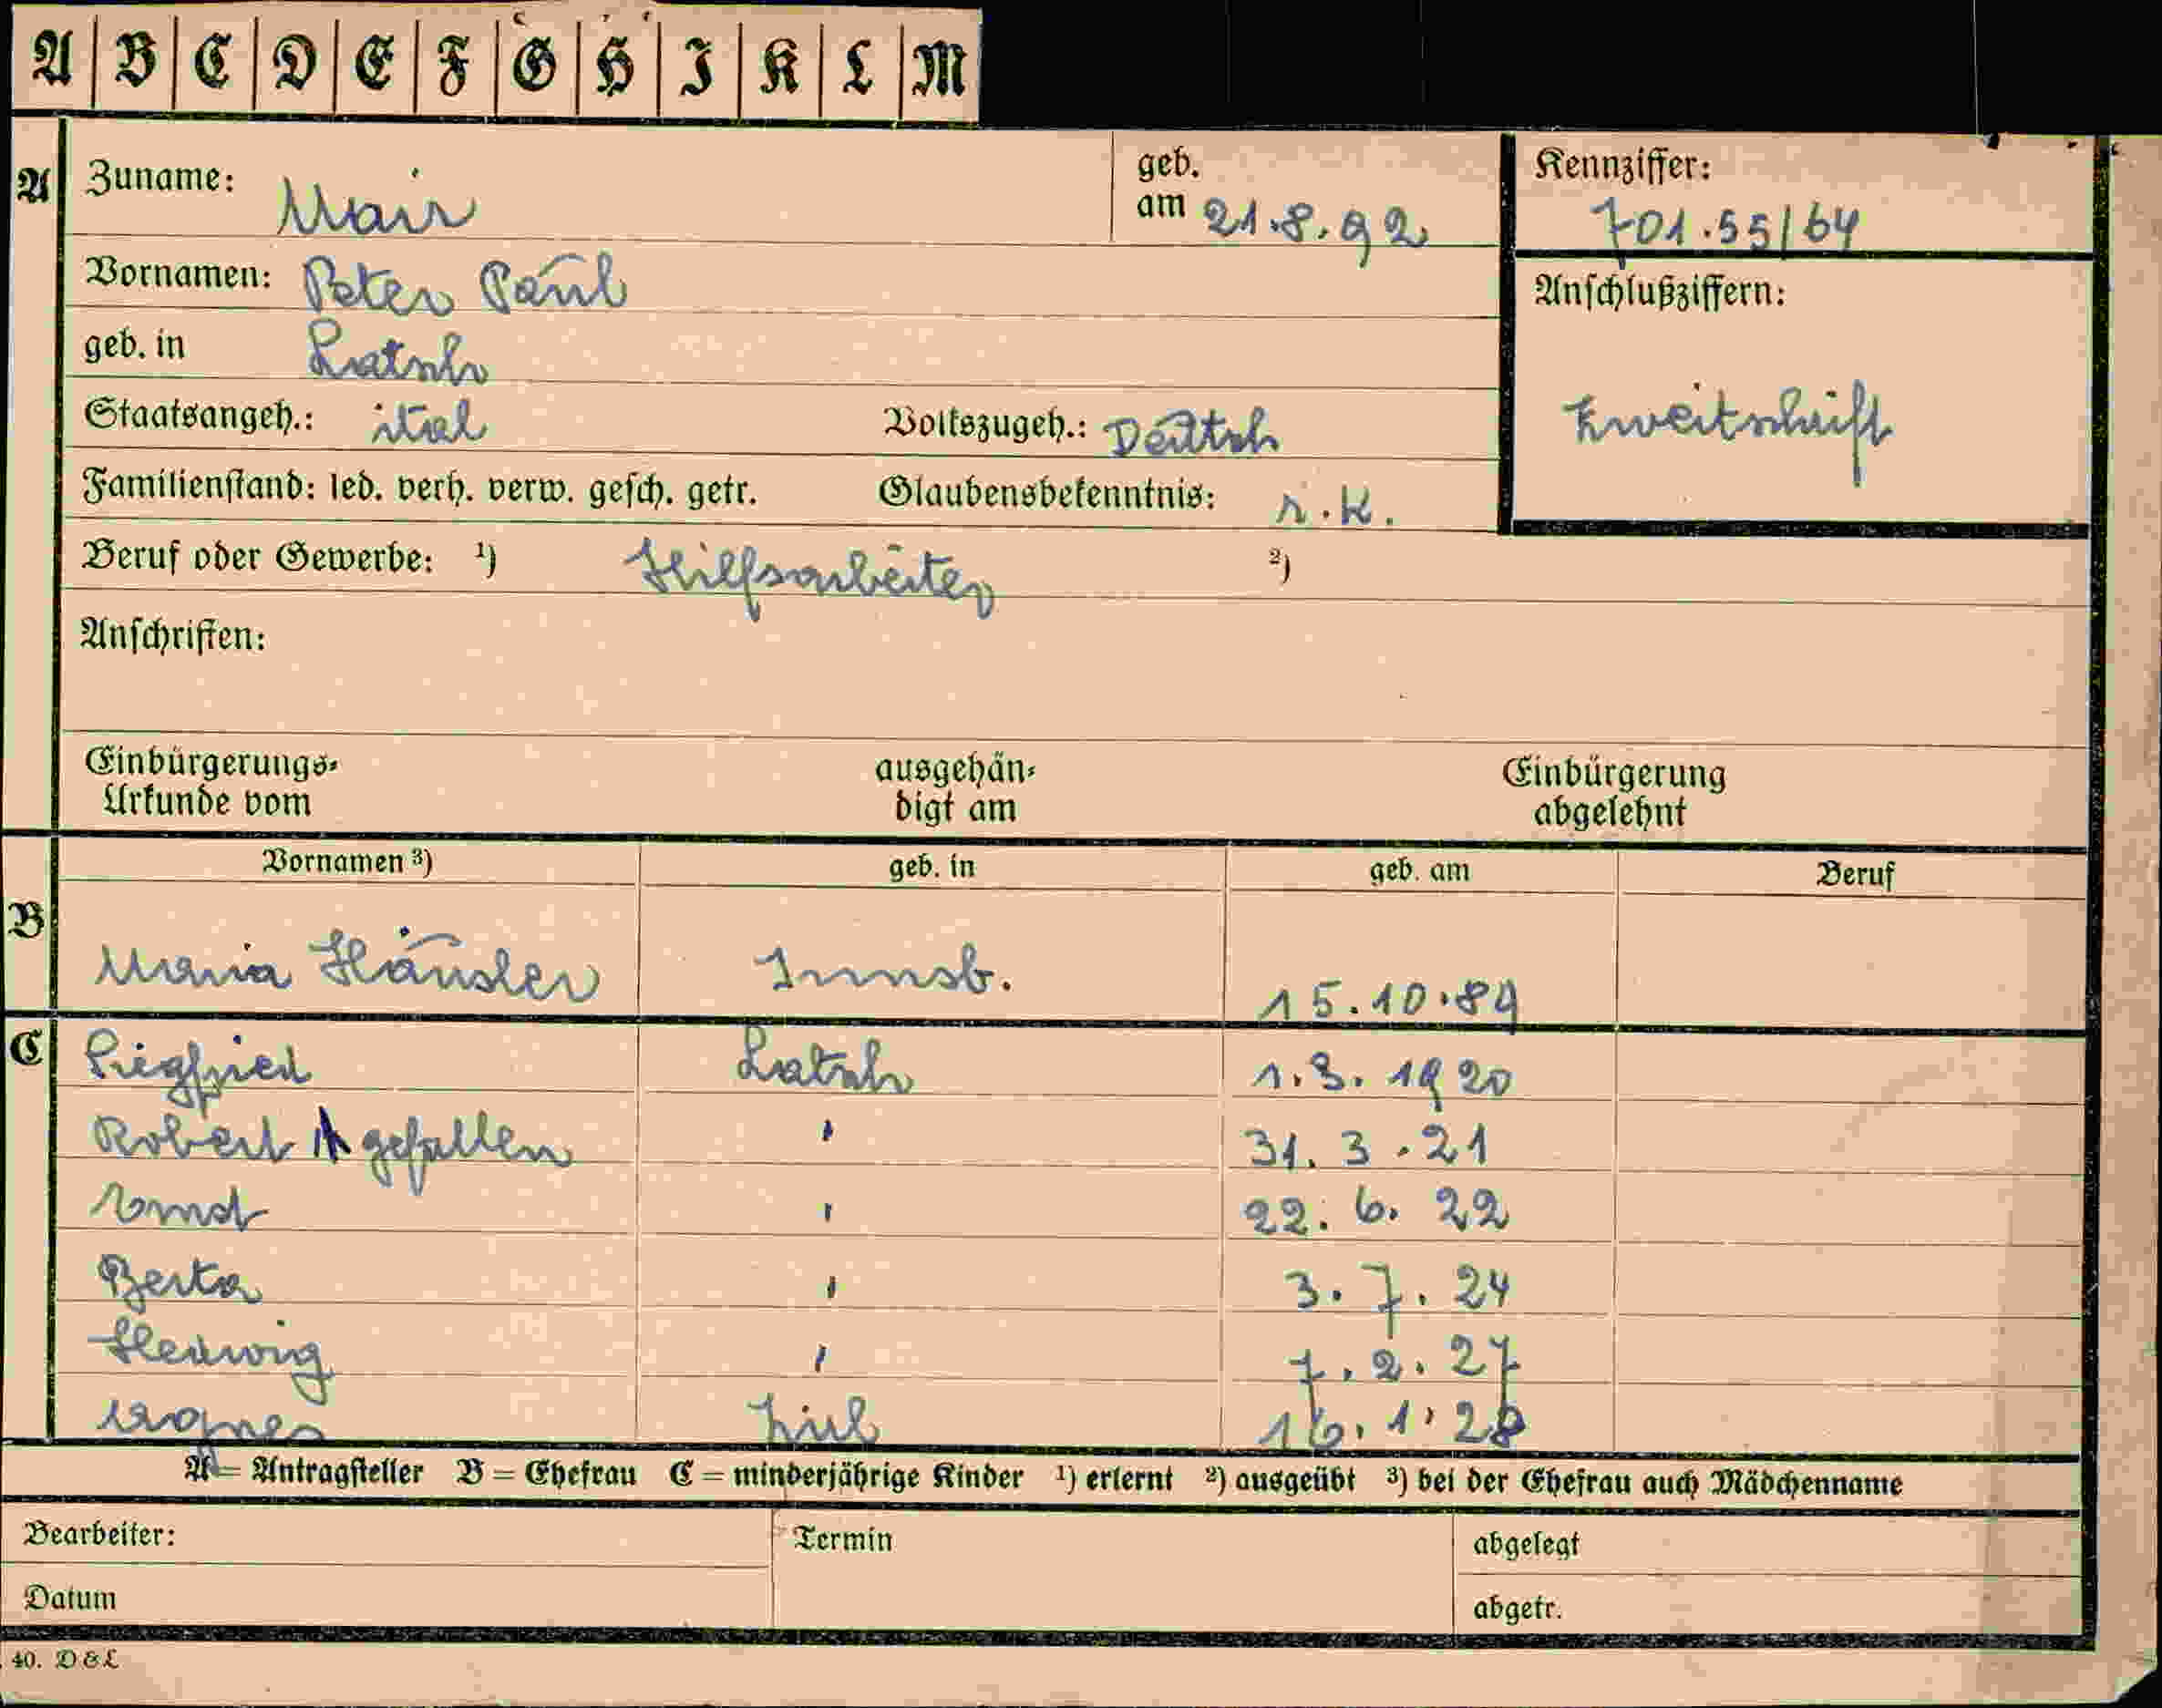 A B C D E F G H I K L M
A Zuname: Mair geb. am 21.8.92 Kennziffer: 701.55/64
Vornamen: Peter Paul Anschlußziffern:
geb. in Latsch
Zweitschrift
Staatsangeh.: ital Volkszugeh.: Deutsch
Familienstand: led. verh. verw. gesch. getr. Glaubensbekenntnis: r.k.
Beruf oder Gewerbe: ¹) Hilfsarbeiter ²)
Anschriften:
Einbürgerungs- ausgehän- Einbürgerung
Urkunde vom digt am abgelehnt
Vornamen ³) geb. in geb. am Beruf
B Maria Häusler Innsb. 15.10.89
C Siegfried Latsch 1.3.1920
Robert gefallen " 31.3.21
Ernst " 22.6.22
Berta " 3.7.24
Hedwig " 7.2.27
Agnes 16.1.28
A = Antragsteller B = Ehefrau C = minderjährige Kinder ¹) erlernt ²) ausgeübt ³) bei der Ehefrau auch Mädchenname
Bearbeiter: Termin abgelegt
Datum abgetr.
40. D & L